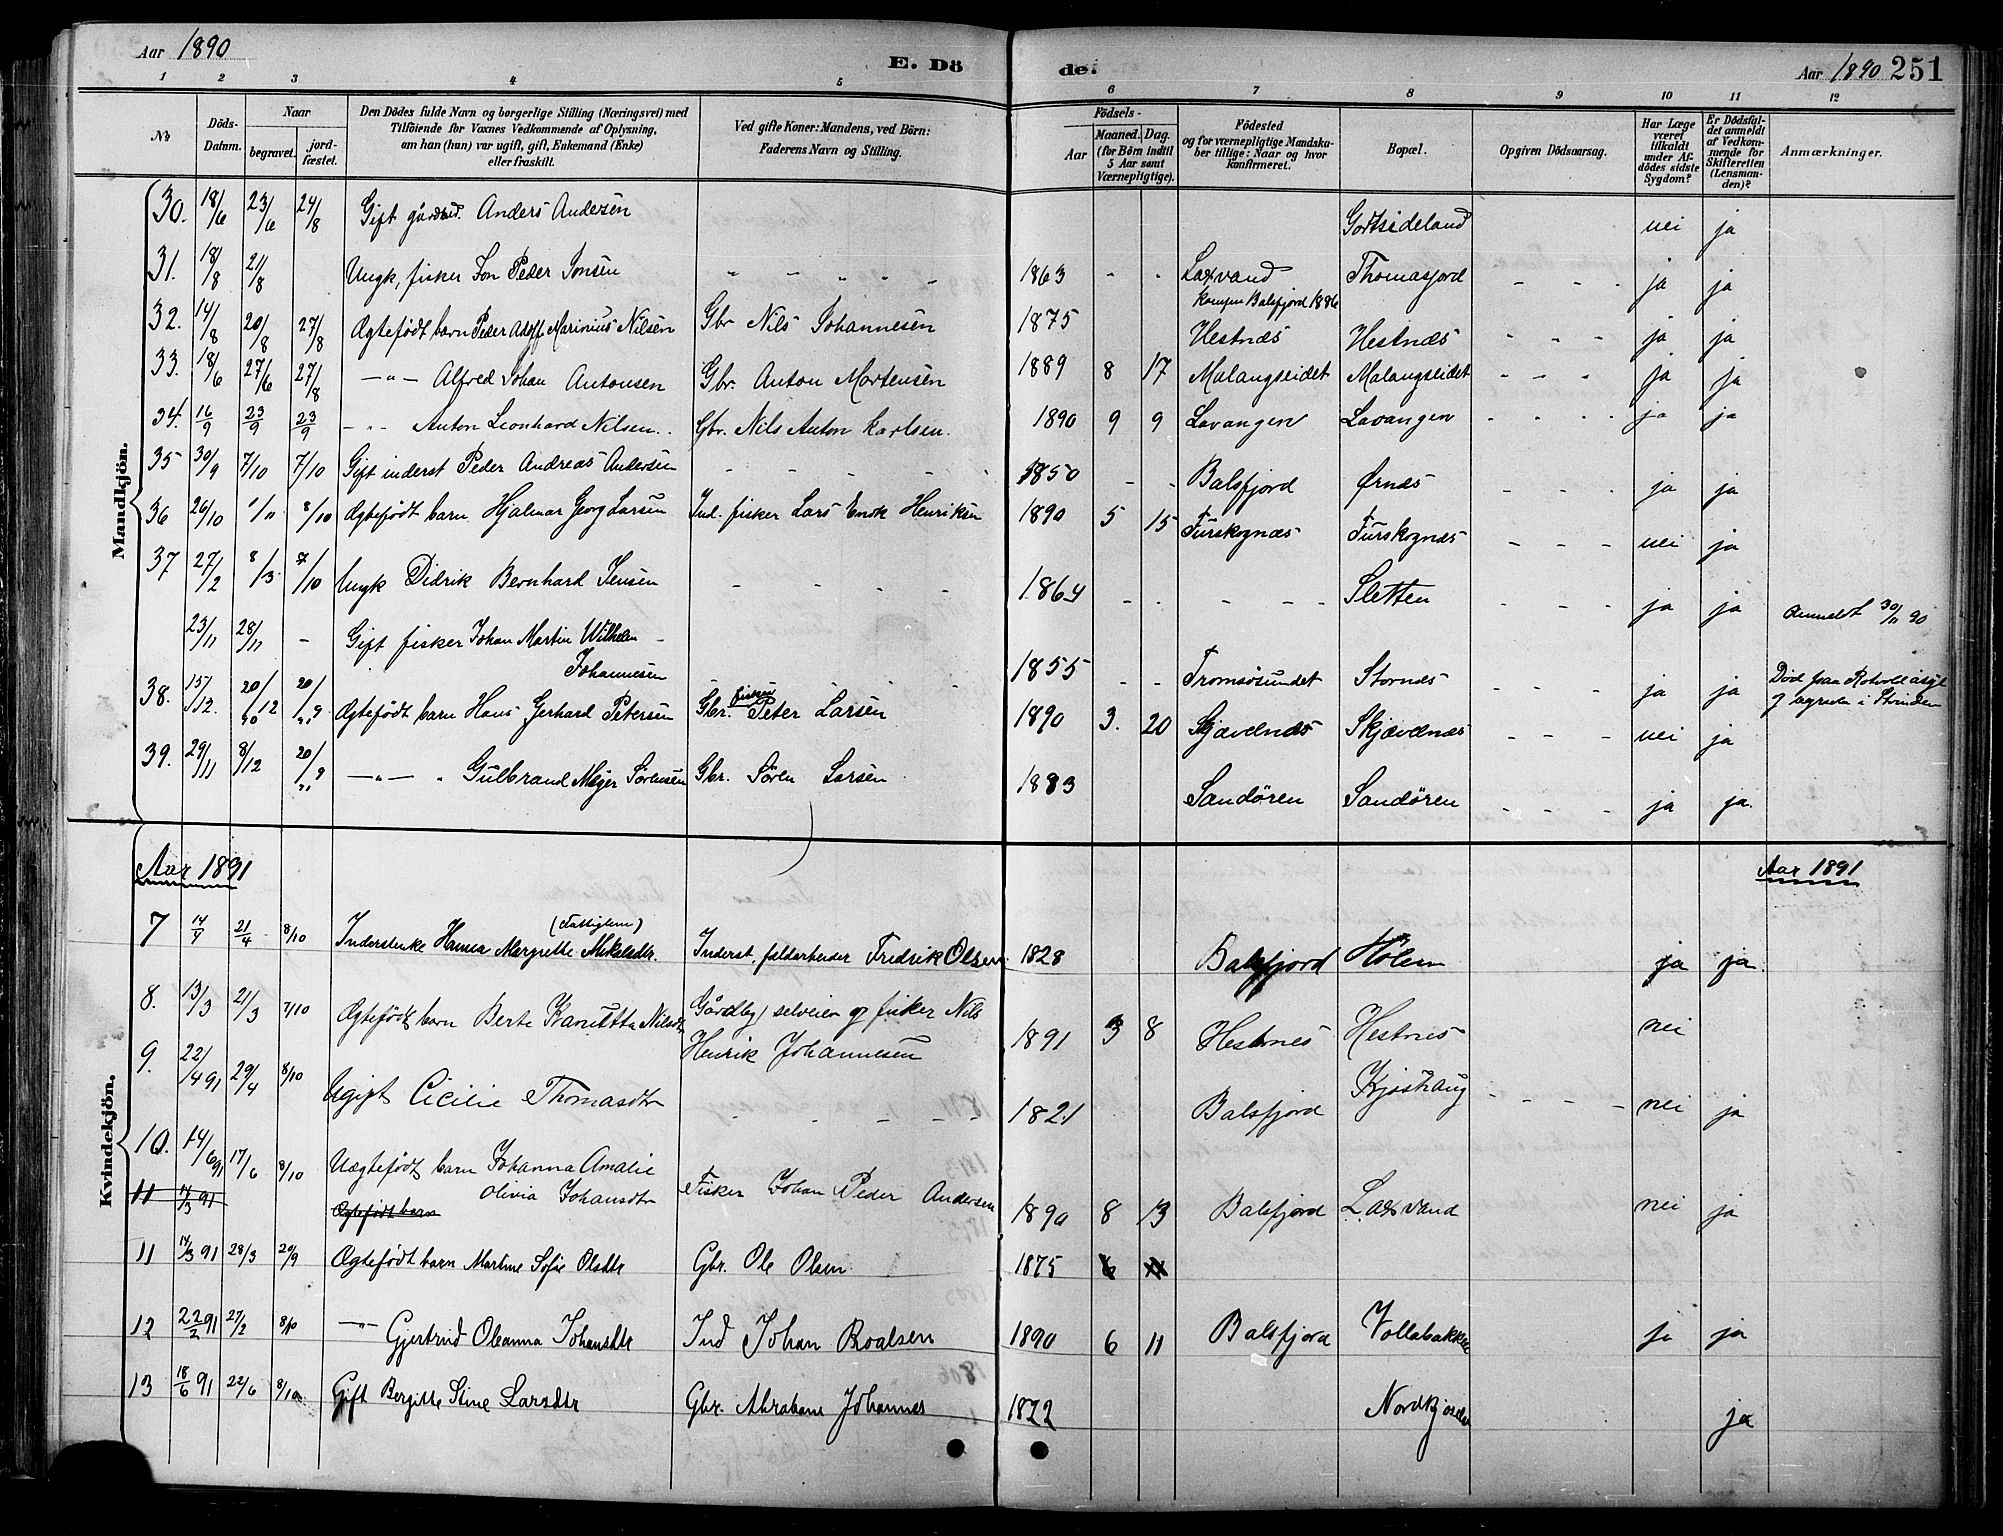 Aar 1890
E. Dö
de.
Aar 1890 251
1 2 3 4 5 6 7 8 9 10 11 12
No
Döds-Datum.
Naar
begravet.
jord-fæstet.
Den Dödes fulde Navn og borgerlige Stilling (Næringsvei) med
Tilföiende for Voxnes Vedkommende af Oplysning,
om han (hun) var ugift, gift, Enkemand (Enke)
eller fraskilt.
Ved gifte Koner: Mandens, ved Börn:
Faderens Navn og Stilling.
Födsels-
Aar
Maaned. Dag.
(for Börn indtil
5 Aar samt
Værnepligtige).
Födested
og for værnepligtige Mandska-
ber tillige: Naar og hvor
konfirmeret.
Bopæl.
Opgiven Dödsaarsag.
Har Læge
været
tilkaldt
under Af-
dödes sidste
Sygdom?
Er Dödsfal-
det anmeldt
af Vedkom-
mende for
Skifteretten
(Lensman-
den)?
Anmærkninger.
Mandkjön.
30. 18/6 23/6 24/8 Gift Anders Andersen nei ja
31. 18/8 21/8 Ungk, fisker Peder Jonsen " " " " " 1863 " " Laxvand Thomasjord - - - ja ja
Balsfjord 1886
32. 14/8 20/8 27/8 Ægtefødt barn Peder Adolf Marinius Nilsen Gbr Nils Johannesen 1875 Hestnæs Hestnæs - - - ja ja
33. 18/6 27/6 27/8 -"- Alfred Johan Antonsen Gbr. Anton Mortensen 1889 8 17 Malangseidet Malangseidet - - - ja ja
34. 16/9 23/9 23/9 - " - Anton Leonhard Nilsen. Gbr. Nils Anton Karlsen. 1890 9 9 Lavangen Lavangen - - - ja ja
35 30/9 7/10 7/10 Gift inderst Peder Andreas Andersen - - - 1850 - - Balsfjord Ørnæs - - - ja ja
36 26/10 1/11 8/10 Ægtefødt barn Hjalmar Georg Larsen Ind. fisker Lars Enok Henriksen 1890 5 15 Furskognæs Furskognæs - - - nei ja
37 27/2 8/3 7/10 Ungk Didrik Bernhard Jensen - - - - 1864 - - - - - Sletten - - - ja ja
23/11 28/11 - Gift fisker Johan Martin Wilhelm - Anmeldt 30/11 90
Johannesen - - - 1855 - - Tromsøsundet Stornæs - - - ja ja
38. 15/12 20/12 Ægtefødt barn Hans Gerhard Petersen Gbr. fisker Peter Larsen 1890 3. 20 Skjævelnæs Skjævelnæs - - - nei ja
39. 29/11 8/12 -"- " Gulbrand Meyer Sørensen Gbr. Søren Larsen 1883 Sandøren Sandøren - - - ja ja.
Aar 1891
Aar 1891
Kvindekjön.
7 14/4 21/4 8/10 Hansa Margrethe Mikalsdtr. Inderst, Fredrik Olsen 1828 Balsfjord Holm ja ja.
8. 13/3 21/3 7/10 Ægtefødt barn Berte Kanutta Nilsdtr Gårdbr, selveier og fisker Nils
Henrik Johannesen 1891 3 8 Hestnes Hestnes nei
9. 22/4 91 29/4 8/10 Ugift Cicilie Thomasdtr - - - - 1821 Balsfjord - - - - nei ja
10. 14/6 91 17/6 8/10 Uægtefødt barn Johanna Amalie
Olivia Johansdtr Fisker Johan Peder Andersen 1890 8 13 Balsfjord Laxvand nei ja
11 14/3 91 Ægtefødt barn
11 14/3 91 28/3 20/9 Ægtefødt barn Martine Sofie Olsdtr Gbr. Ole Olsen 1875 6
12 22/2 91 27/2 8/10 -"- Gjertrud Oleanna Johansdtr Ind Johan Roalsen 1890 6 11 Balsfjord Vollabakken ja ja
13 18/6 91 22/6 8/10 Gift Bergitte Stine Larsdtr Gbr. Abraham Johannes 1822 ja